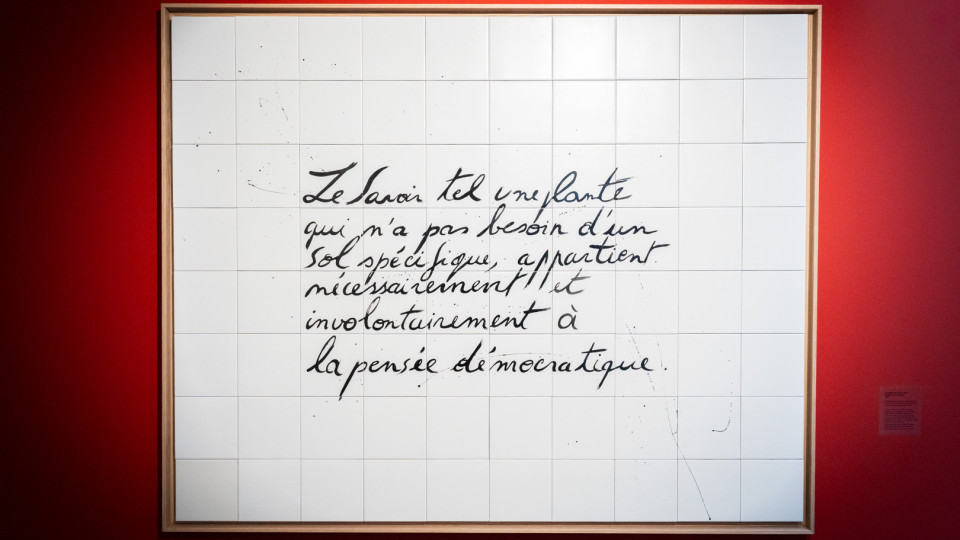 Le Savoir tel une plante
qui n'a pas besoin d'un
sol spécifique, appartient
nécessairement et
involontairement à
la pensée démocratique.